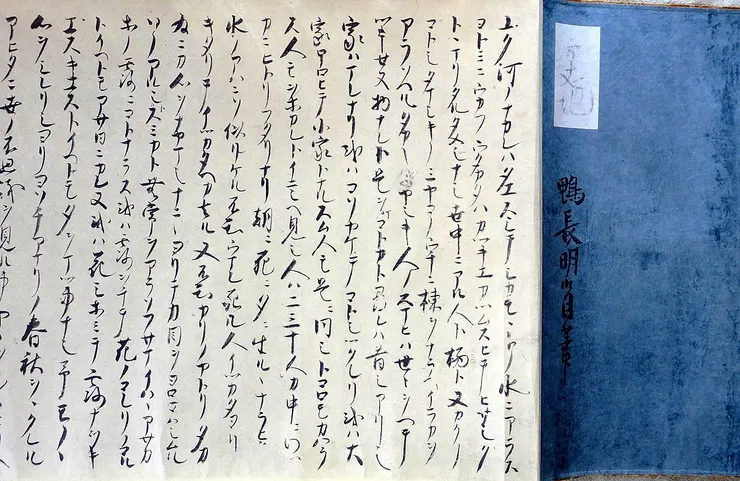 方丈記
鴨長明自筆也
ユク河ノナカレハタエスシテシカモヽトノ水ニアラス
ヨトミニウカフウタカタハカツキエカツムスヒテヒサシク
トヽマリタルタメシナシ世中ニアル人ト栖ト又カクノ
コトシタマシキノミヤコノウチニ棟ヲナラヘイラカヲ
アラソヘルタカキイヤシキ人ノスマヒハ世々ヲヘテ
ツキセヌ物ナレト是ヲマコトカト尋レハ昔シアリシ
家ハマレナリ或ハコソヤケテコトシツクレリ或ハ大
家ホロヒテ小家トナルスム人モ是ニ同シトコロモカハラ
ス人モヲホカレトイニシヘ見シ人ハ二三十人カ中ニワツ
カニヒトリフタリナリ朝ニ死ニ夕ニ生ルヽナラヒ
水ノアハニソ似リケル不知ウマレ死ル人イツカタヨリ
キタリテイツカタヘカ去ル又不知カリノヤトリタカ
為ニカ心ヲナヤマシナニヽヨリテカ目ヲヨロコハシムル
ソノアルシトスミカト無常ヲアラソフサマイハヽアサカ
ホノ露ニコトナラス或ハ露ヲチテ花ノコレリノコル
トイヘトモアサ日ニカレヌ或ハ花シホミテ露ナヲキ
エスキエストイヘトモ夕ヲマツ事ナシ予モノヽ
心ヲシレリシヨリヨソチアマリノ春秋ヲヽクレル
アヒタニ世ノ不思議ヲ見ル事